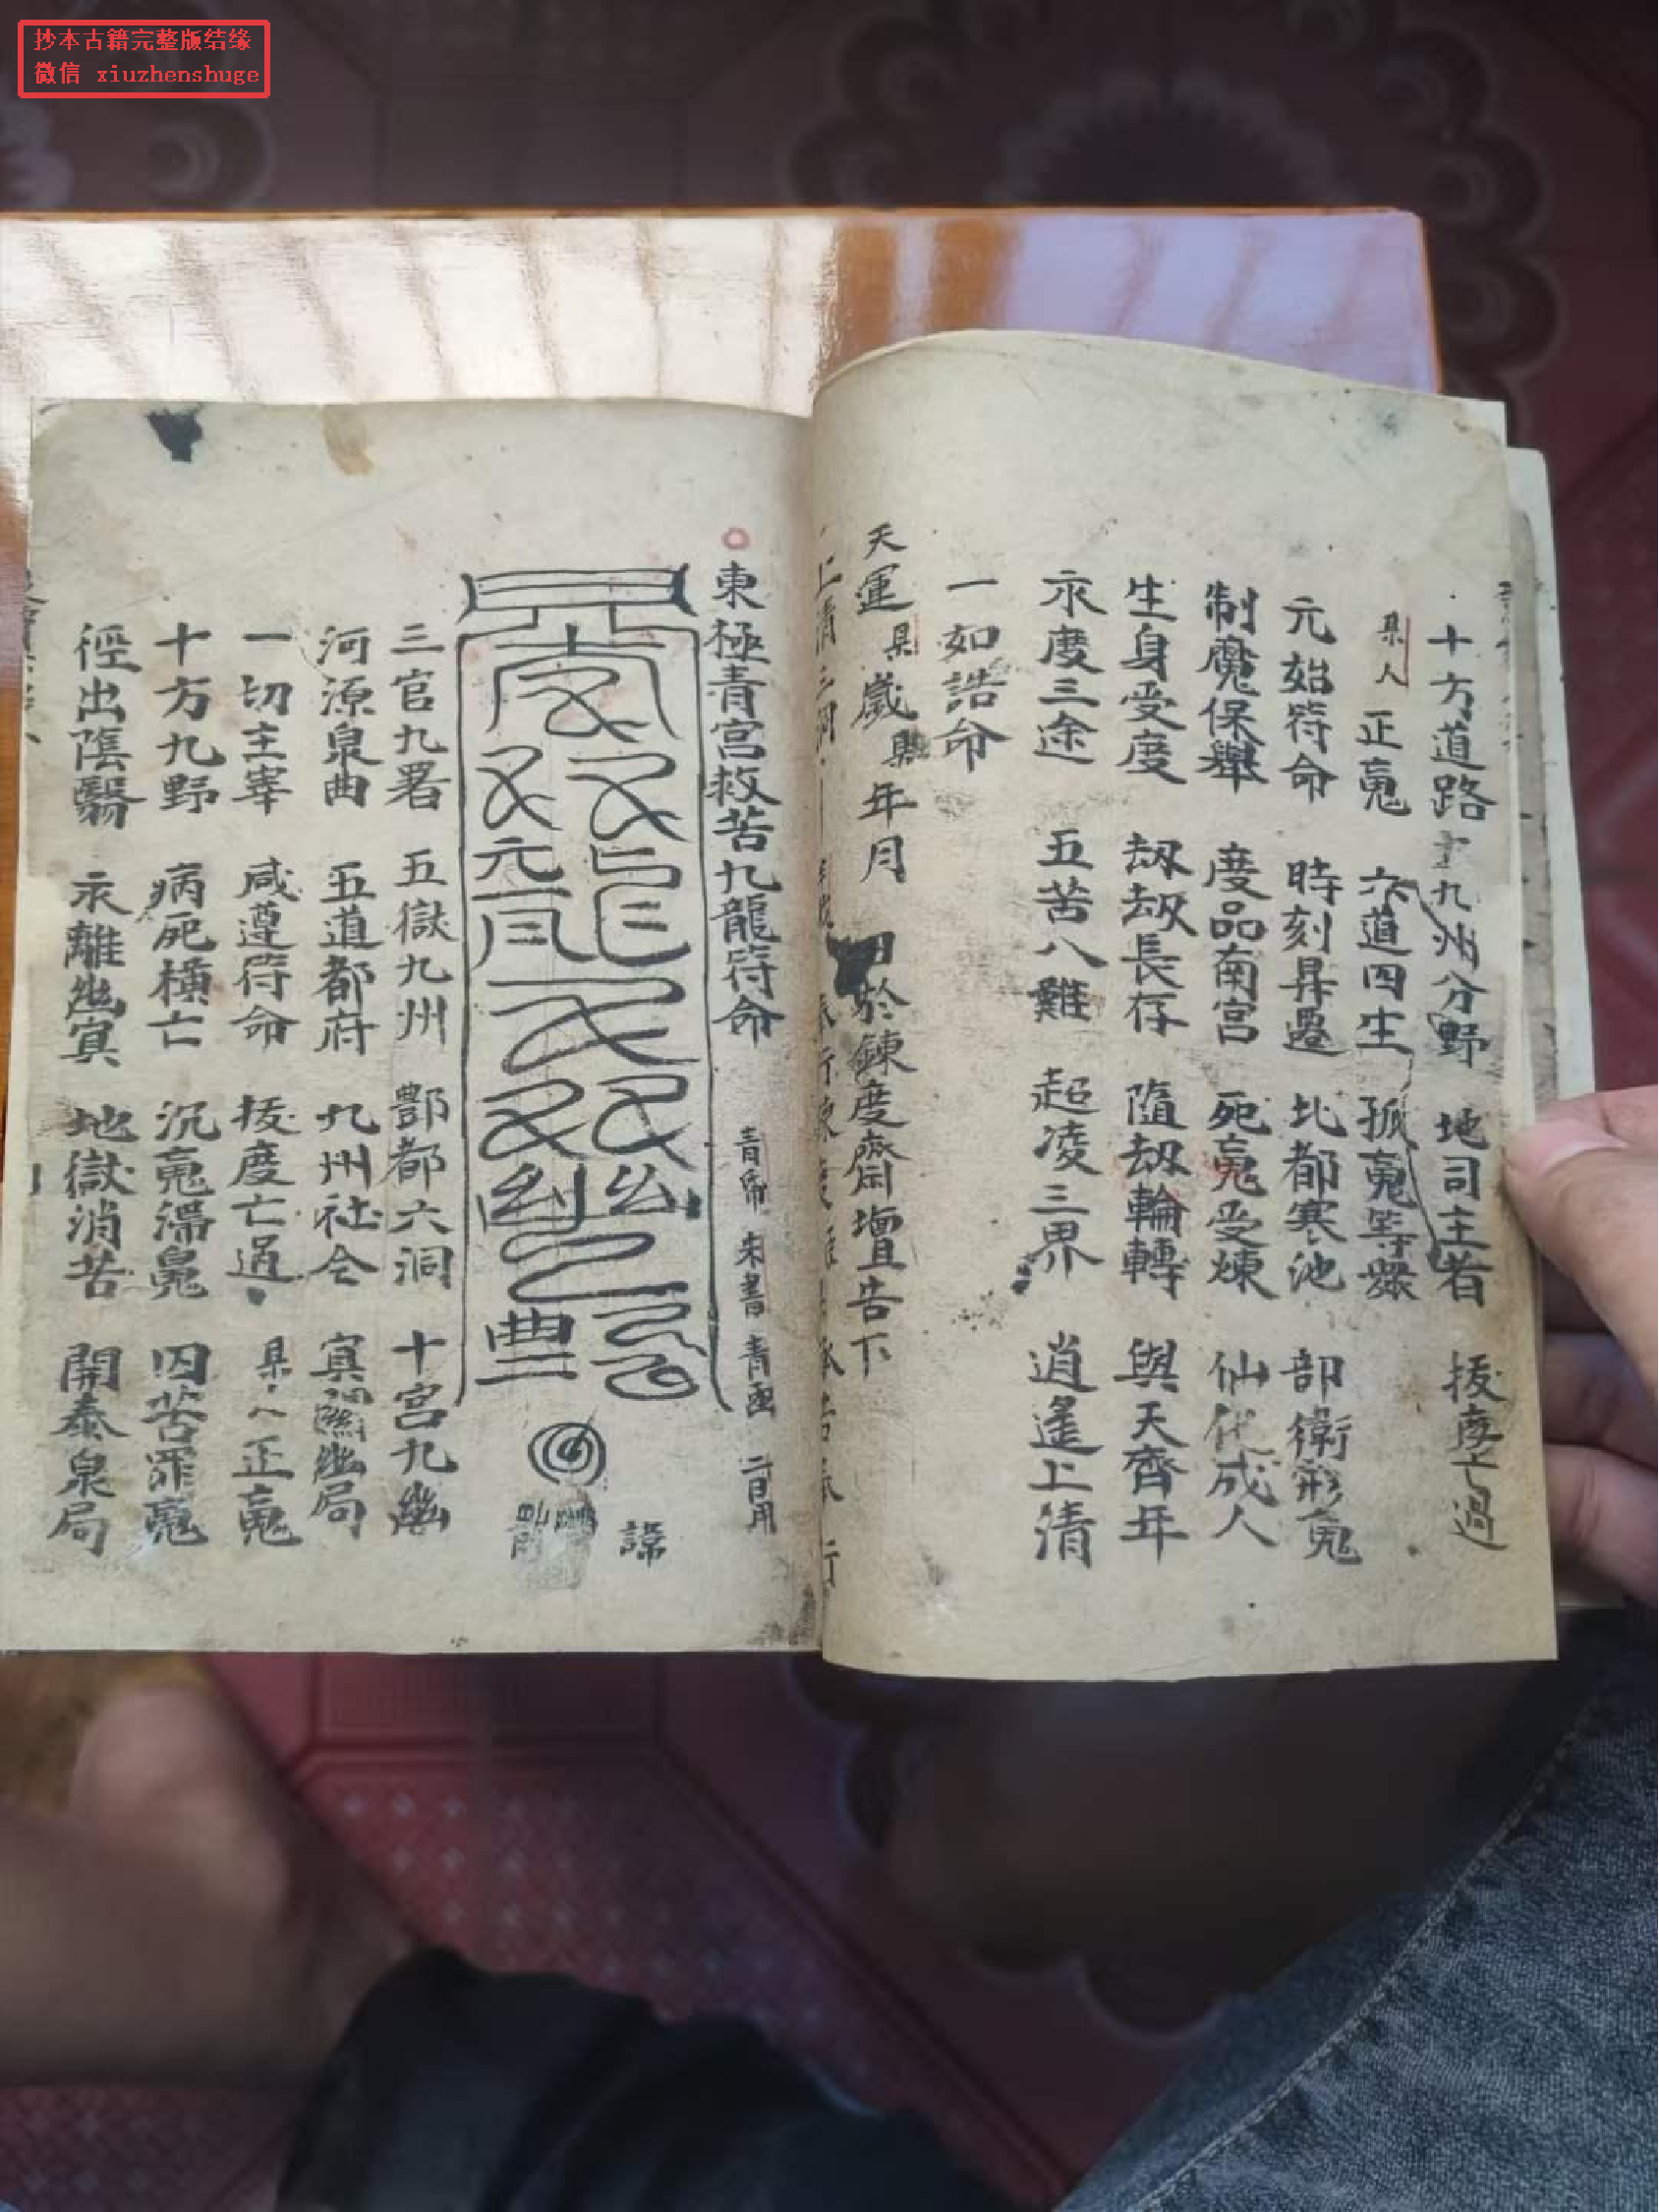 抄本古籍完整版结缘
微信 xiuzhenshuge
十方道路 九州分野 地司主者 拔度亡過
某人正䰟 六道四生 孤䰟等衆
元始符命 時刻昇遷 北都寒池 部衛形䰟
制魔保舉 度品南宮 死䰟受煉 仙化成人
生身受度 劫劫長存 隨劫輪轉 與天齊年
永度三途 五苦八難 超凌三界 逍遙上清
一如誥命
天運某歲 年月 日於鍊度齋壇告下
東極青宮救苦九龍符命 青帋 朱書 青函 二日用
諱
三官九署 五獄九州 酆都六洞 十宮九幽
河源泉曲 五道都府 九州社令 冥關幽局
一切主宰 咸遵符命 拔度亡過 某人正䰟
十方九野 病死橫亡 沉䰟滯魄 囚苦罪䰟
徑出陰翳 永離幽冥 地獄消苦 開泰泉局